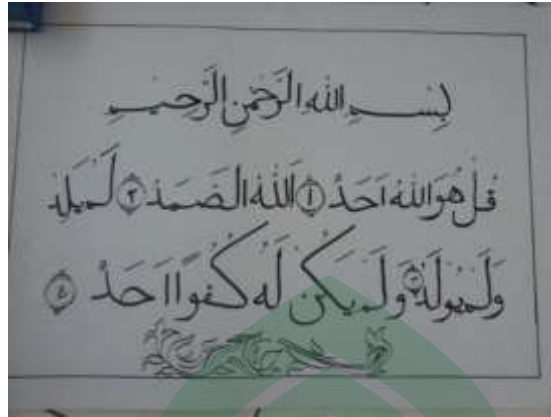 بِسْمِ اللهِ الرَّحْمٰنِ الرَّحِيْمِ
قُلْ هُوَ اللهُ اَحَدٌ ١ اَللهُ الصَّمَدُ ٢ لَمْ يَلِدْ
وَلَمْ يُوْلَدْ ٣ وَلَمْ يَكُنْ لَهُ كُفُوًا اَحَدٌ ٤